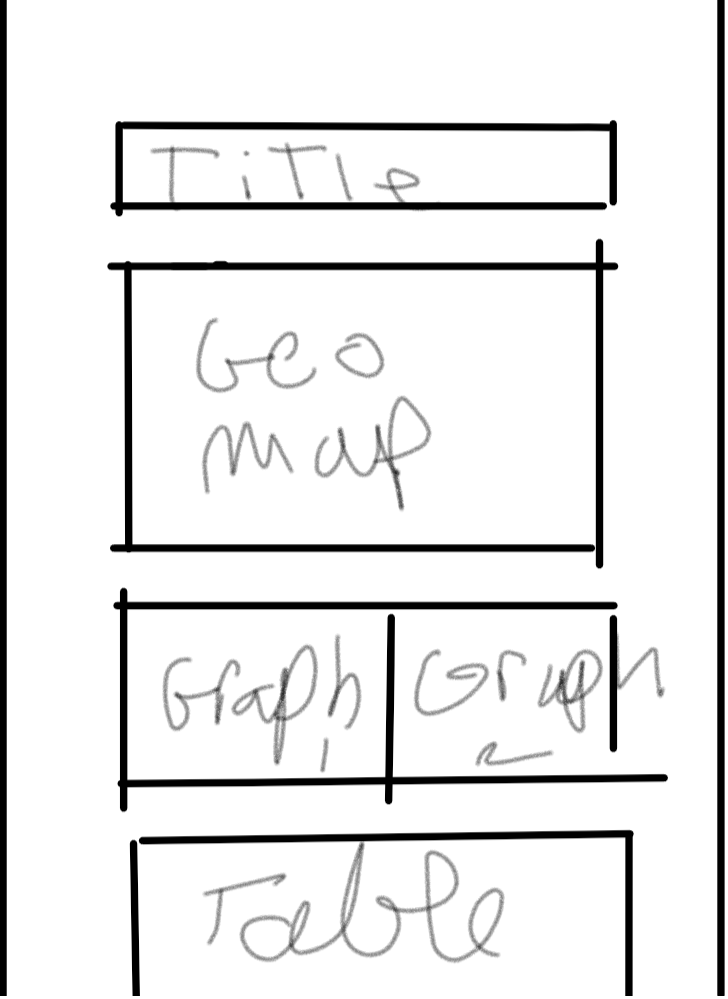 Title
Geo
map
Graph Graph
1 2
Table